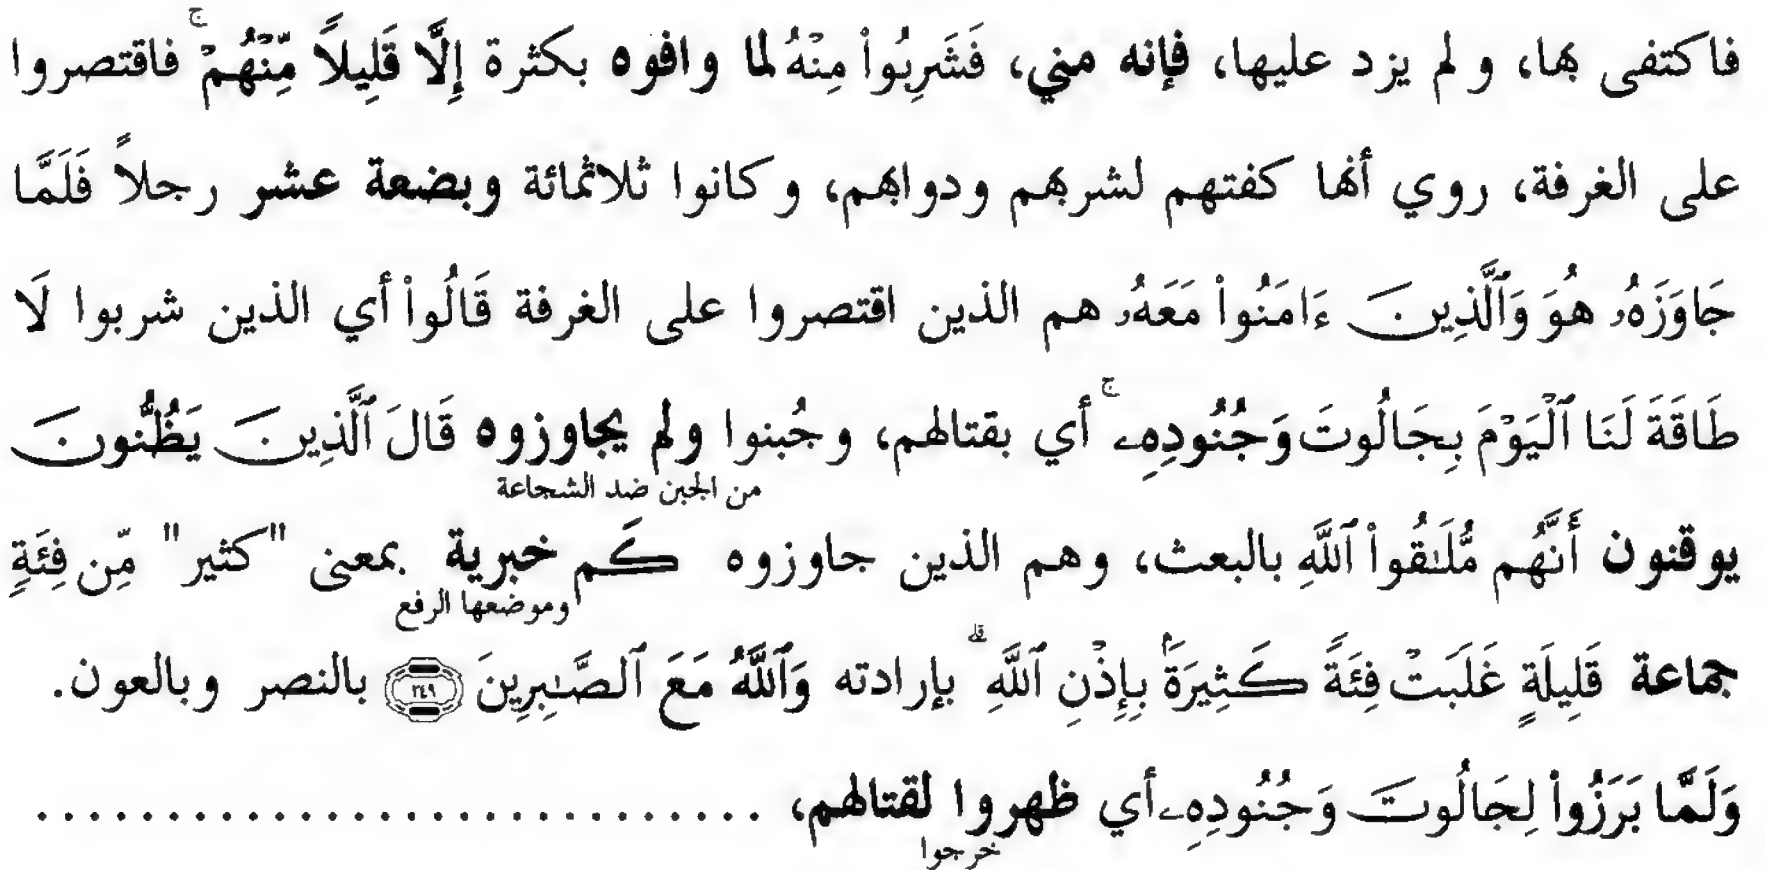 فاكتفى بها، و لم يزد عليها، فإنه مني، فَشَرِبُواْ مِنْهُ لما وافوه بكثرة إِلَّا قَلِيلاً مِّنْهُمْ ۚ فاقتصروا
على الغرفة، روي أنها كفتهم لشربهم ودوابهم، وكانوا ثلاثمائة وبضعة عشر رجلاً فَلَمَّا
جَاوَزَهُۥ هُوَ وَٱلَّذِينَ ءَامَنُواْ مَعَهُۥ هم الذين اقتصروا على الغرفة قَالُواْ أي الذين شربوا لَا
طَاقَةَ لَنَا ٱلْيَوْمَ بِجَالُوتَ وَجُنُودِهِۦ ۚ أي بقتالهم، وجُبنوا ولم يجاوزوه قَالَ ٱلَّذِينَ يَظُنُّونَ
من الجبن ضد الشجاعة
يوقنون أَنَّهُم مُّلَـٰقُواْ ٱللَّهِ بالبعث، وهم الذين جاوزوه كَم خبرية بمعنى "كثير" مِّن فِئَةٍ
وموضعها الرفع
جماعة قَلِيلَةٍ غَلَبَتْ فِئَةً كَثِيرَةَۢ بِإِذْنِ ٱللَّهِ ۗ بإرادته وَٱللَّهُ مَعَ ٱلصَّـٰبِرِينَ ٢٤٩ بالنصر وبالعون.
وَلَمَّا بَرَزُواْ لِجَالُوتَ وَجُنُودِهِۦ أي ظهروا لقتالهم، . . . . . . . . . . . . . . . . . . . . . . . . . . . .
خرجوا